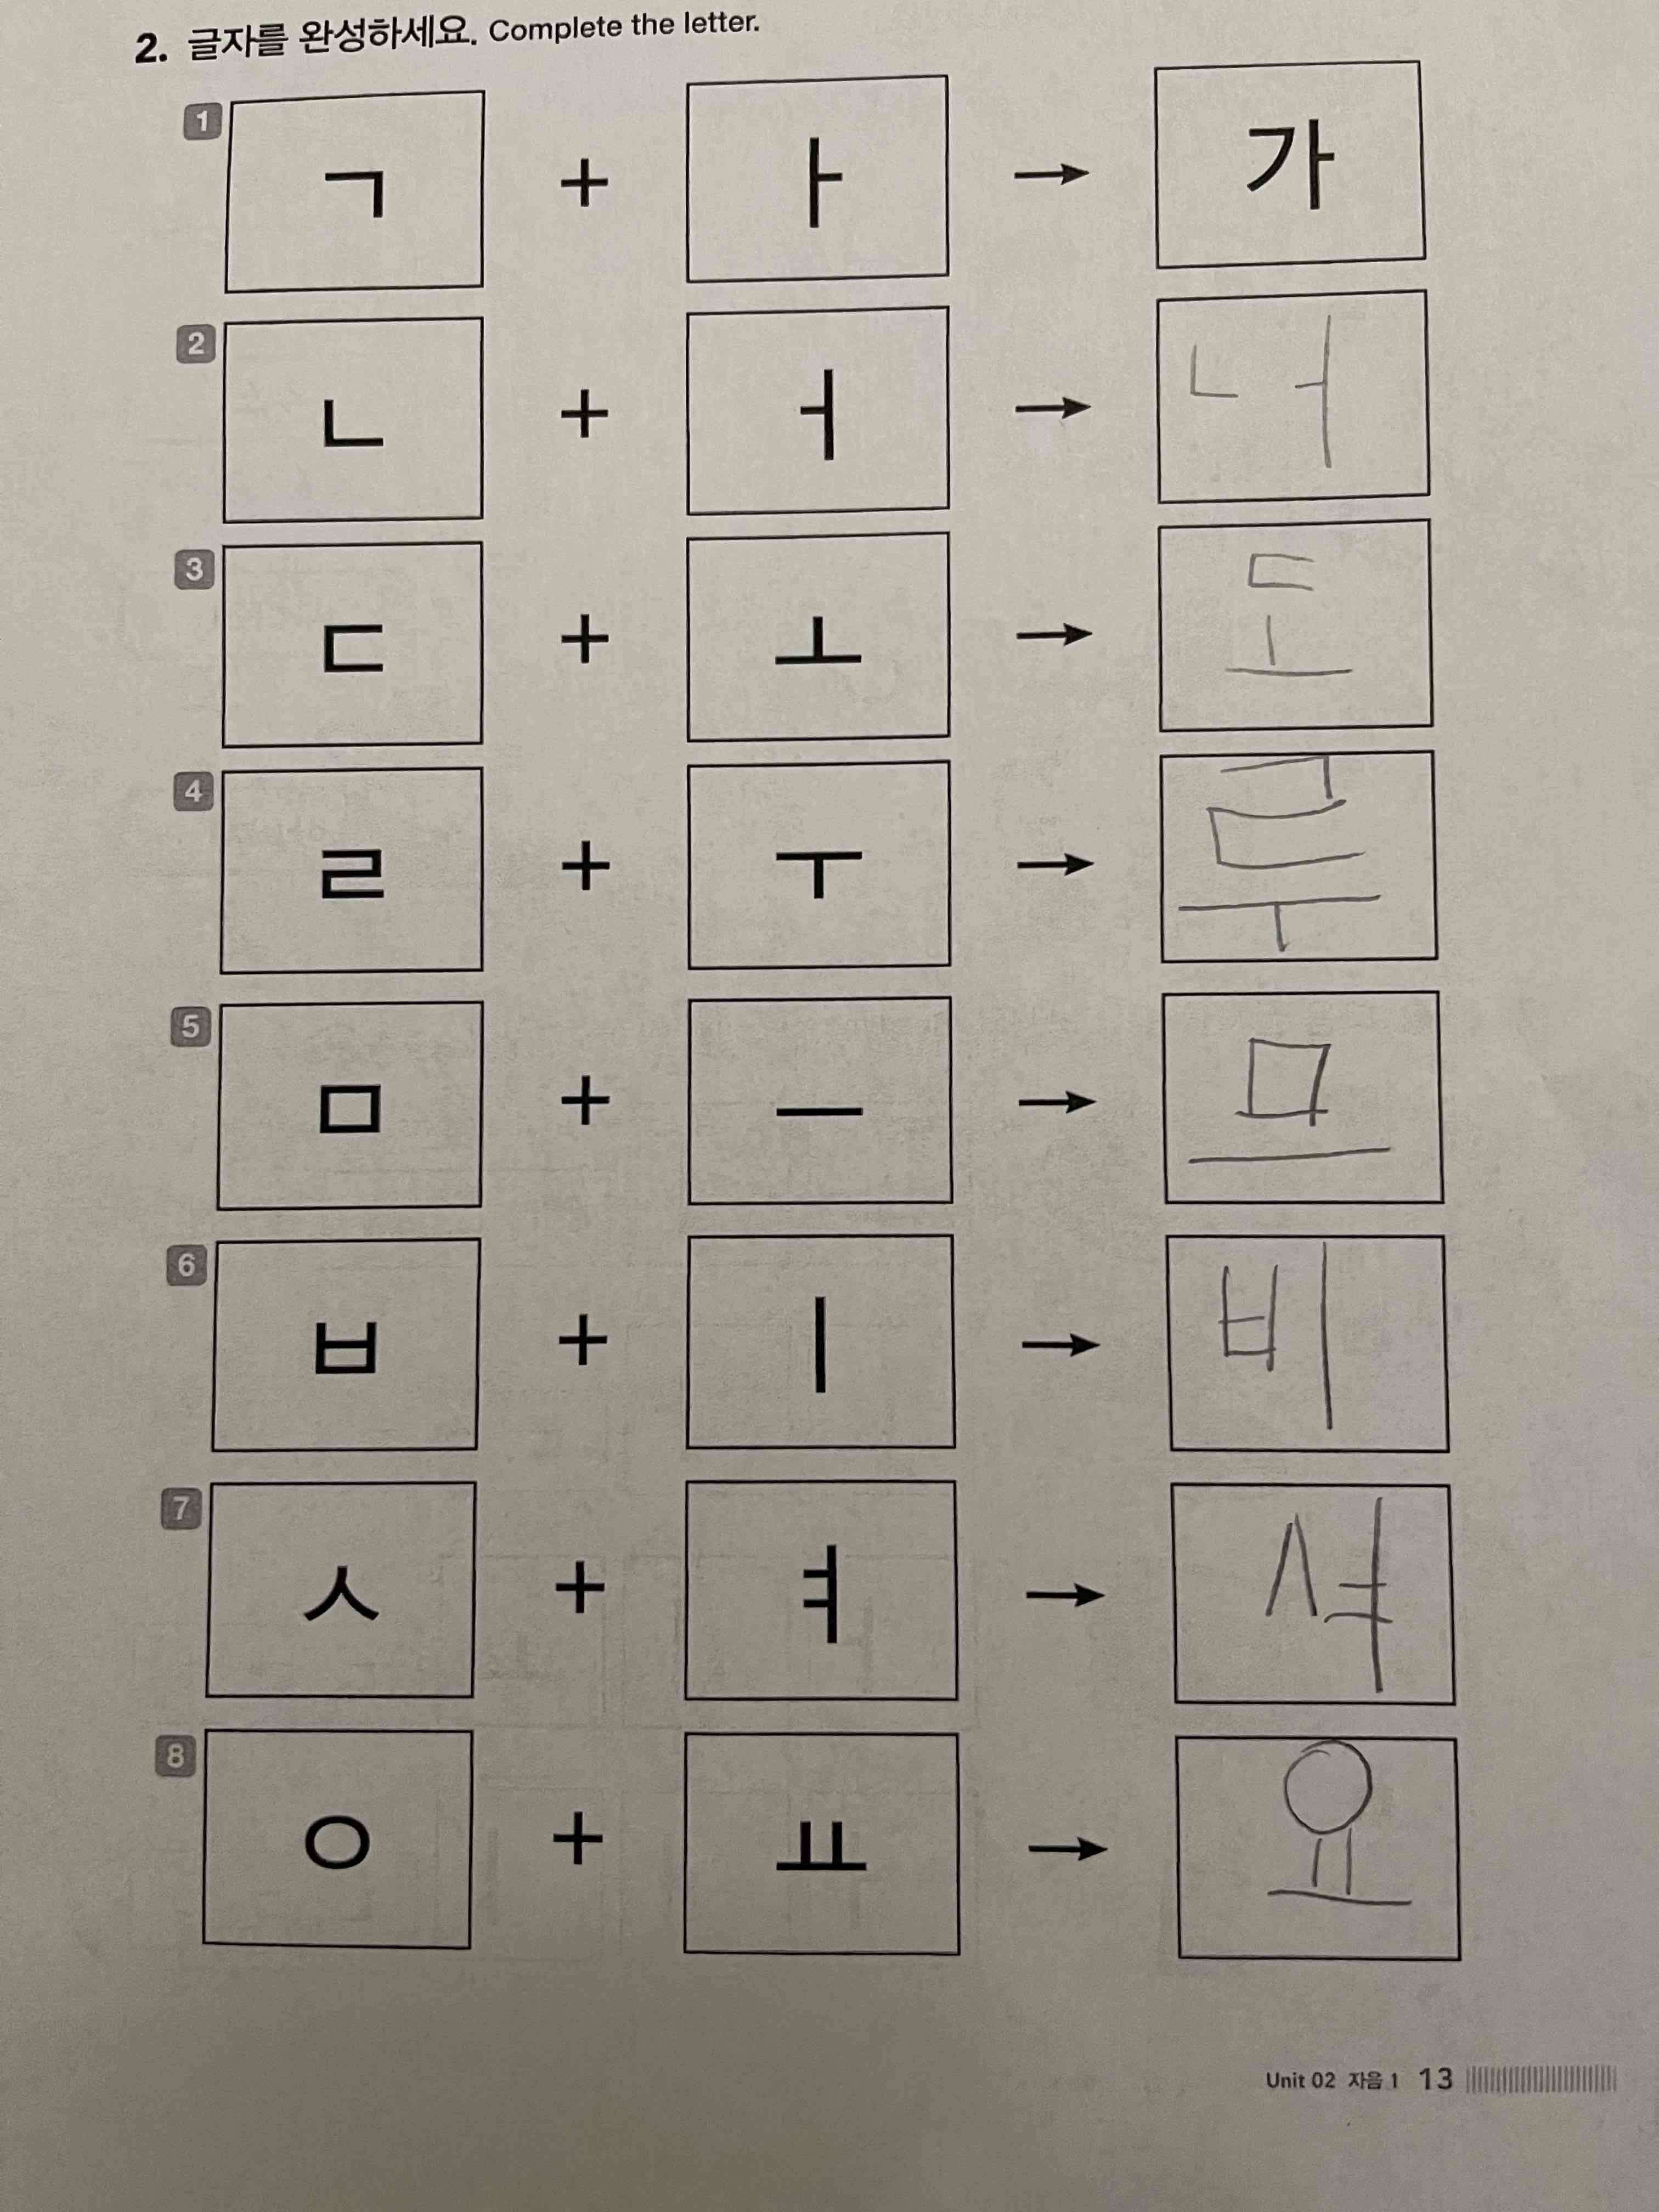 2. 글자를 완성하세요. Complete the letter.
1 ㄱ + ㅏ → 가
2 ㄴ + ㅓ → 너
3 ㄷ + ㅗ → 도
4 ㄹ + ㅜ → 루
5 ㅁ + ㅡ → 므
6 ㅂ + ㅣ → 비
7 ㅅ + ㅕ → 셔
8 ㅇ + ㅛ → 요
Unit 02 자음 1 13